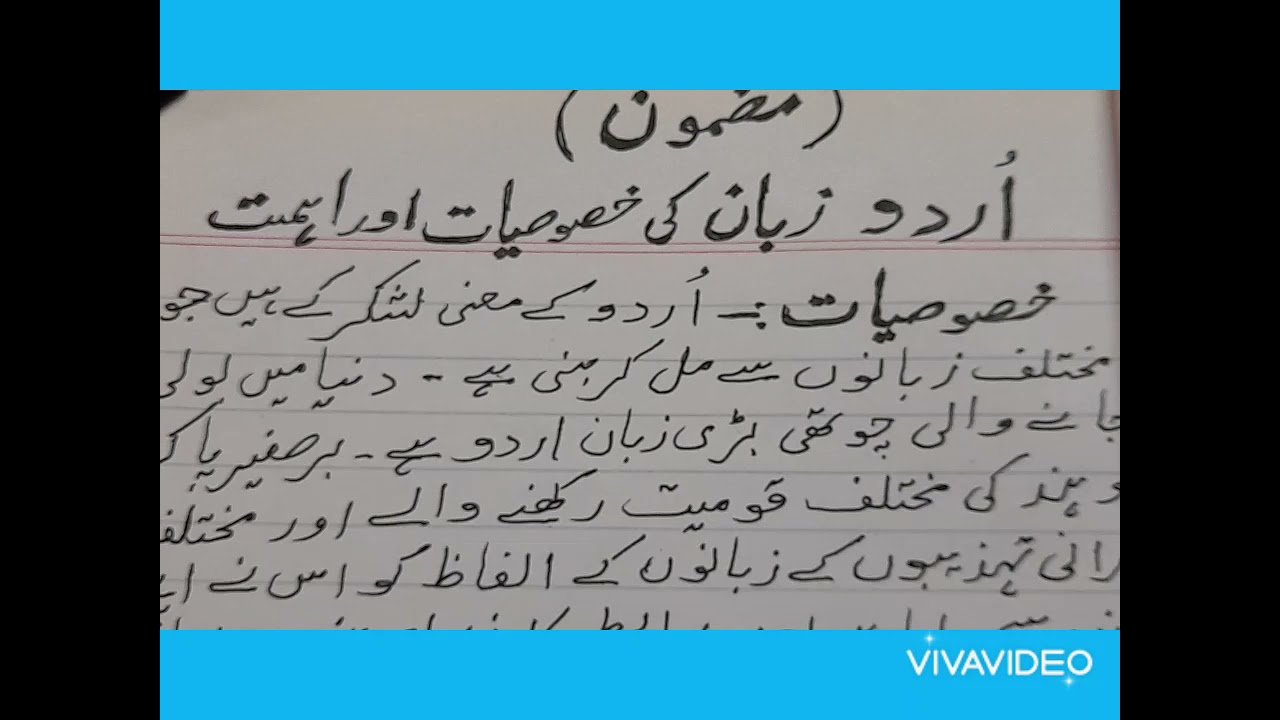 (مضمون)
اُردو زبان کی خصوصیات اور اہمیت
خصوصیات :۔ اُردو کے معنی لشکر کے ہیں جو
مختلف زبانوں سے مل کر بنی ہے ۔ دنیا میں بولی
جانے والی چوتھی بڑی زبان اردو ہے ۔ برصغیر پاک
و ہند کی مختلف قومیت رکھنے والے اور مختلف
تہذیبوں کے زبانوں کے الفاظ کو اس نے
VIVAVIDEO